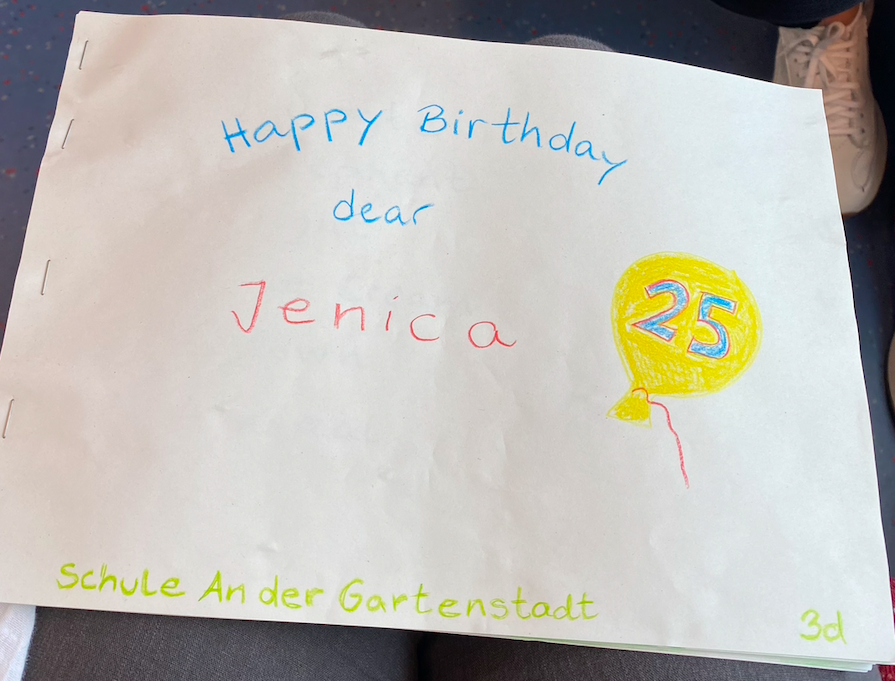 Happy Birthday
dear
Jenica
25
Schule An der Gartenstadt
3d